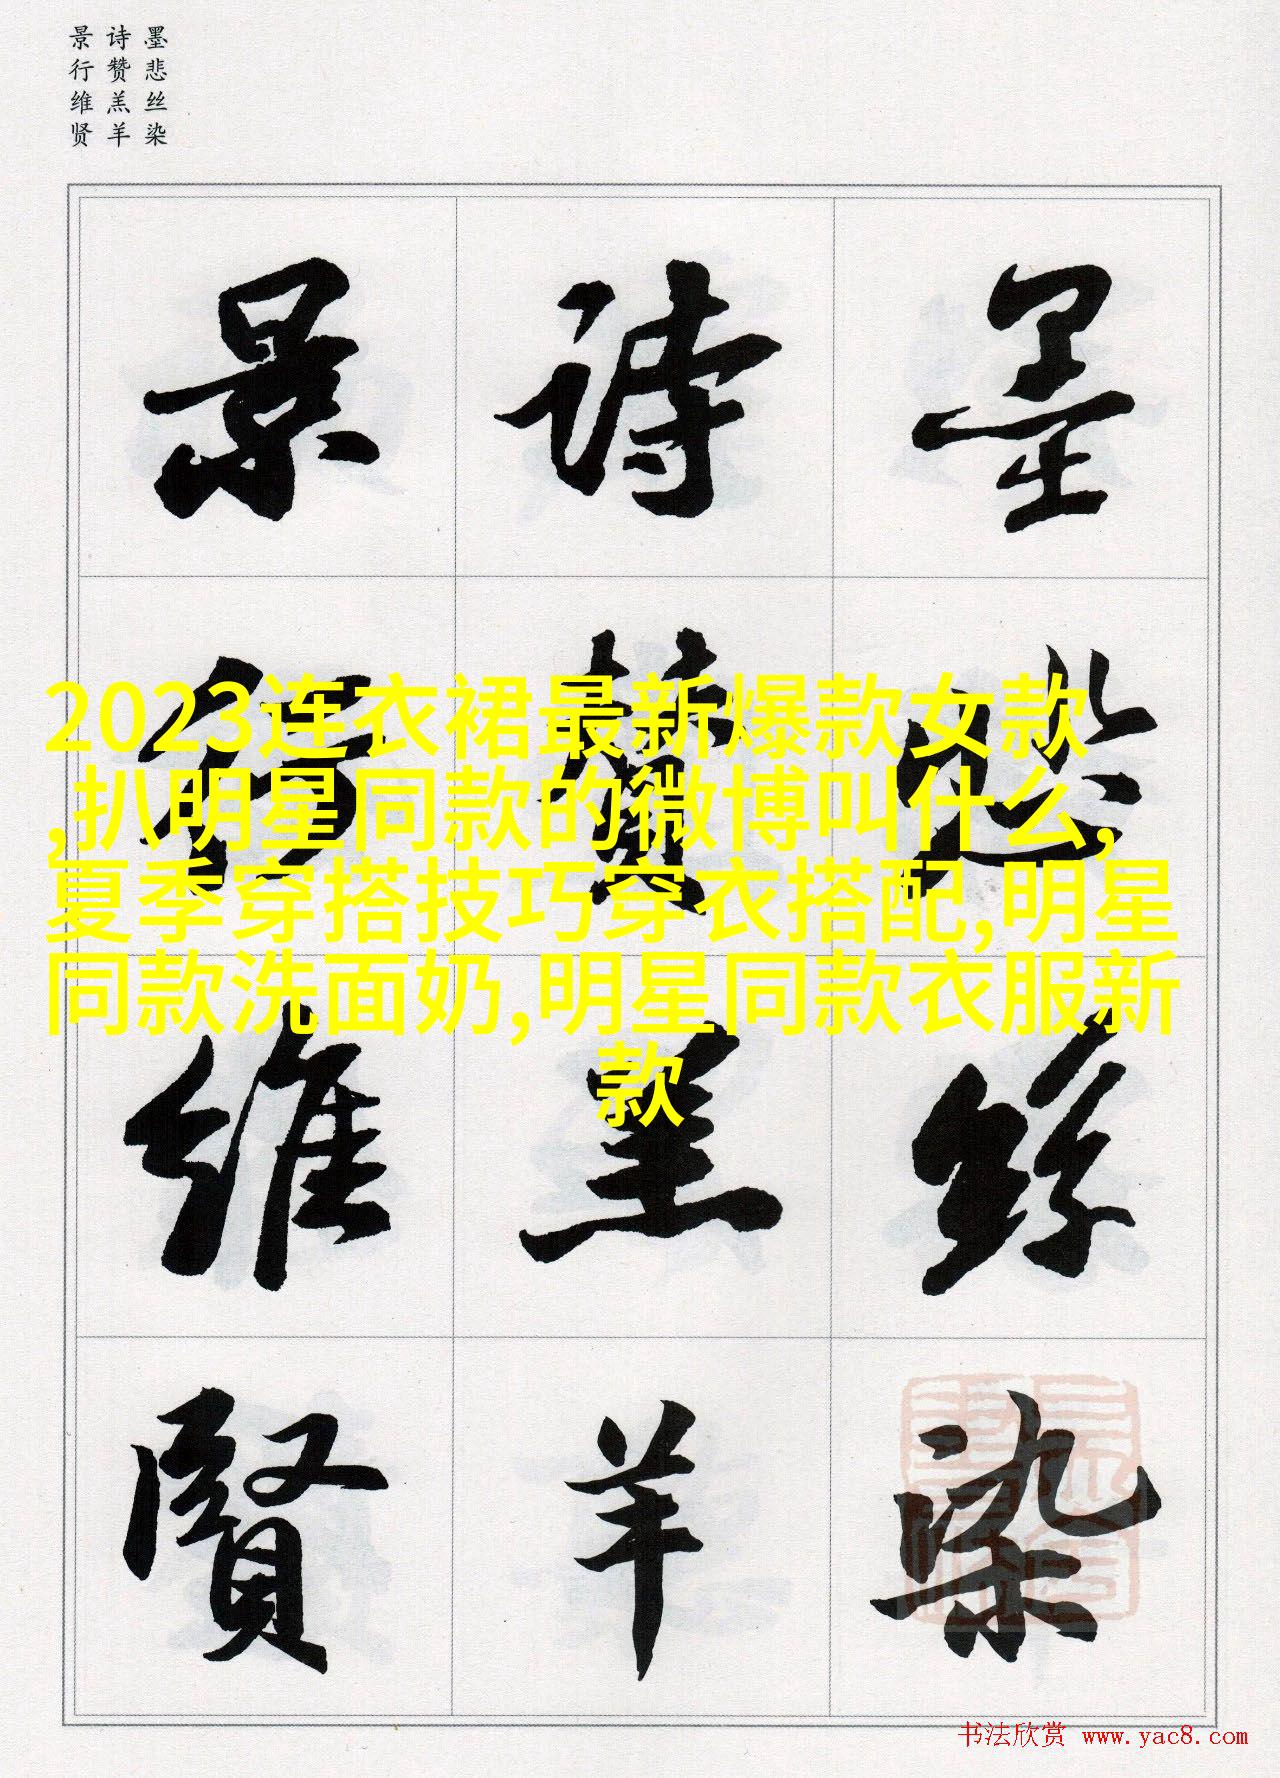 墨悲丝染
诗赞羔羊
景行维贤
墨悲絲染
詩贊羔羊
景行維賢
2023连衣裙最新爆款女款
,扒明星同款的微博叫什么,
夏季穿搭技巧穿衣搭配,明星
同款洗面奶,明星同款衣服新
款
书法欣赏 www.yac8.com